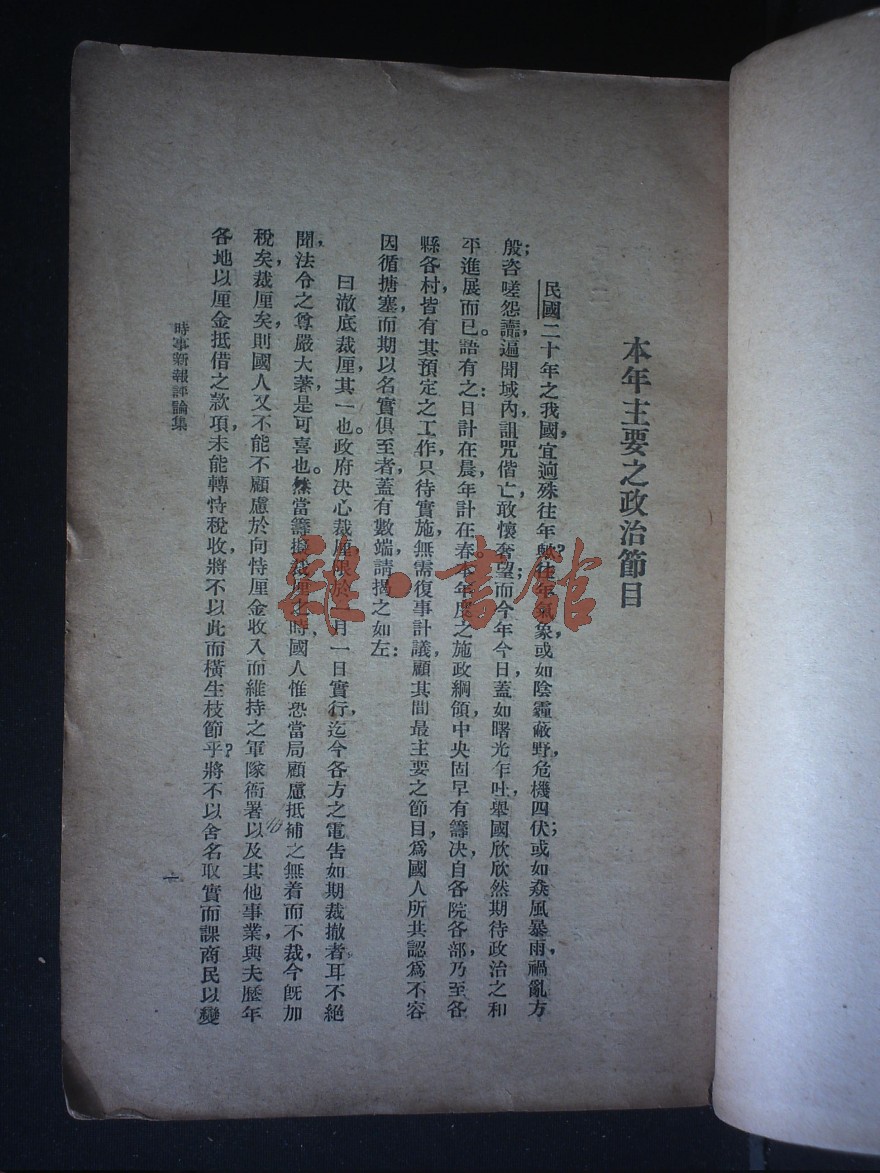 本年主要之政治節目
民國二十年之我國，宜逈殊往年歟？往年氣象，或如陰霾蔽野，危機四伏；或如猋風暴雨，禍亂方
殷；咨嗟怨讟，遍聞域內，詛咒偕亡，敢懷奢望；而今年今日，蓋如曙光乍吐，舉國欣欣然期待政治之和
平進展而已。語有之：日計在晨，年計在春。本年度之施政綱領，中央固早有籌決，自各院各部，乃至各
縣各村，皆有其預定之工作，只待實施，無需復事計議，顧其間最主要之節目，爲國人所共認爲不容
因循搪塞，而期以名實俱至者，蓋有數端，請揭之如左：
曰澈底裁厘，其一也。政府決心裁厘，限於一月一日實行，迄今各方之電告如期裁撤者，耳不絕
聞，法令之尊嚴大著，是可喜也。然當籌擬裁厘之時，國人惟恐當局顧慮抵補之無着而不裁，今旣加
稅矣，裁厘矣，則國人又不能不顧慮於向恃厘金收入而維持之軍隊衙署以及其他事業，與夫歷年
各地以厘金抵借之款項，未能轉恃稅收，將不以此而橫生枝節乎？將不以舍名取實而課商民以變
時事新報評論集
一
雜·書館